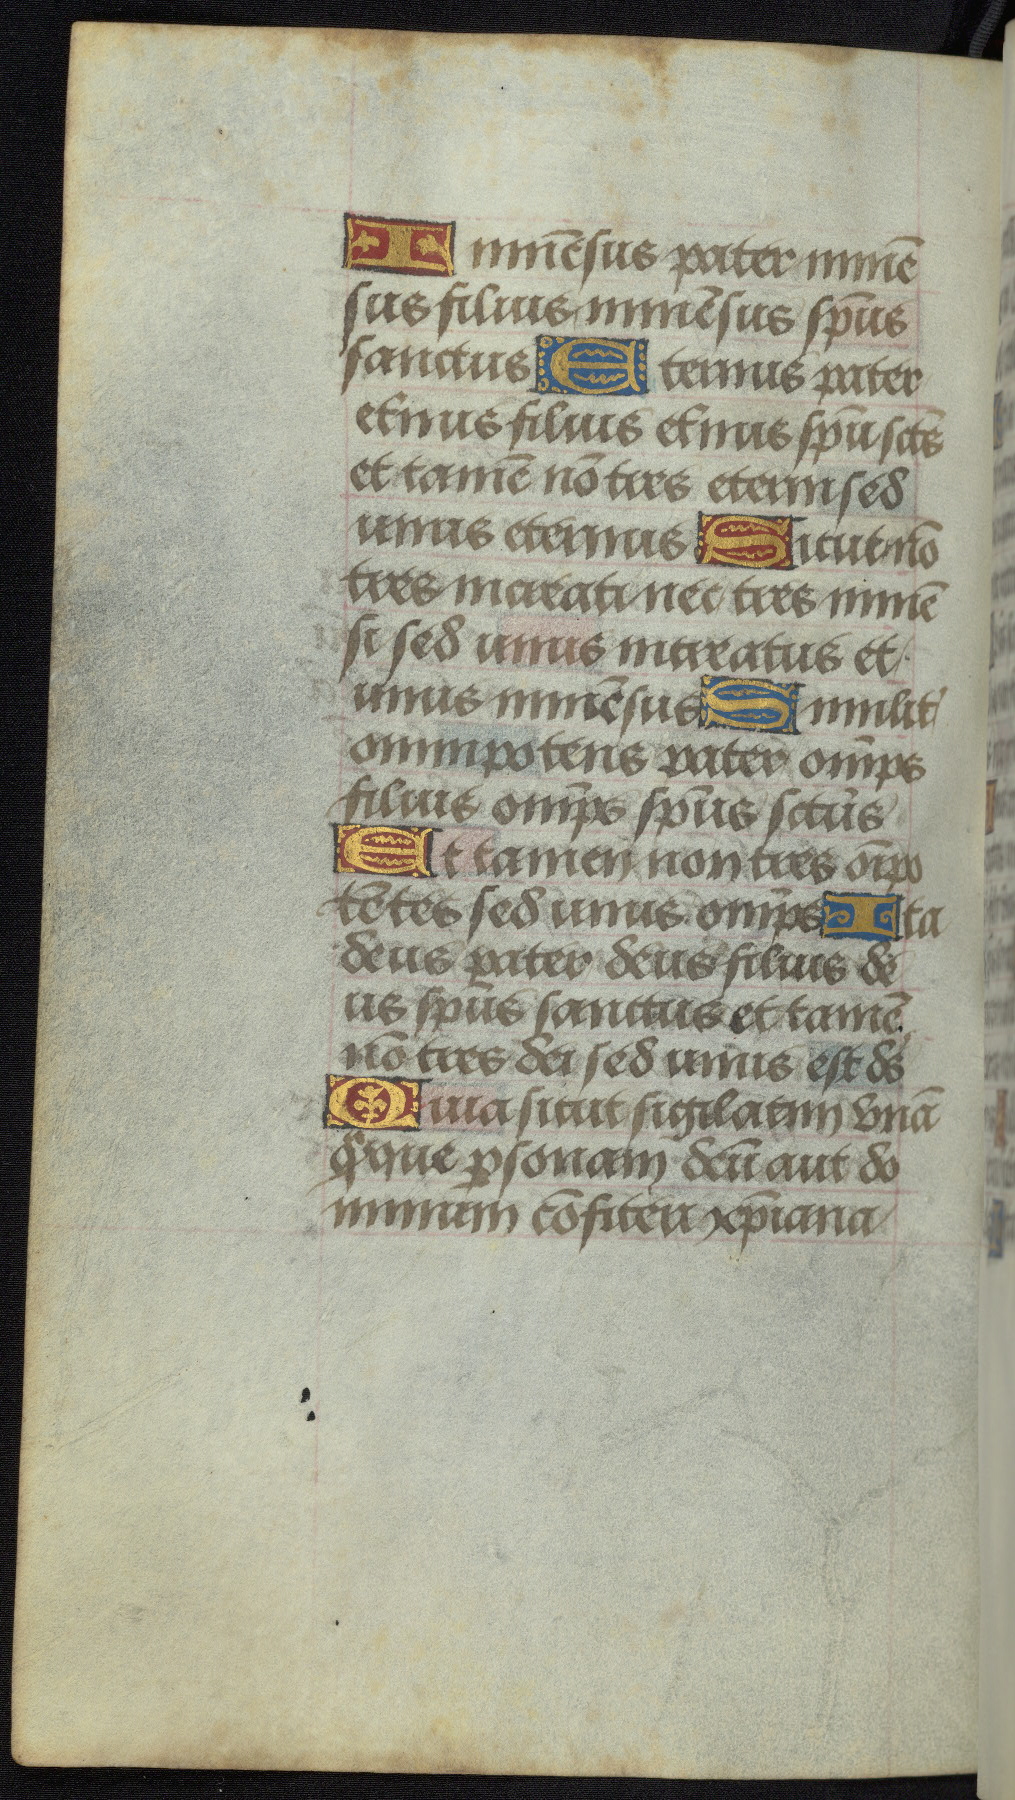 Immēsus pater immē
sus filius immēsus sp̄us
sanctus Eternus pater
et̄nus filius et̄nus sp̄u sct̄s
et tamē nō tres eterni sed
unus eternus Sicut nō
tres increati nec tres immē
si sed unus increatus et
unus immēsus Similit̾
omnipotens pater om̄ps
filius om̄ps sp̄us sctūs
Et tamen non tres oīpo
tētes sed unus om̄ps Ita
deus pater deus filius de
us sp̄us sanctus et tamē
nō tres dei sed unus est ds̄
Quia sicut sigilatim vnā
q̄que ꝑsonam deū aut do
minum cōfiteri xp̄iana